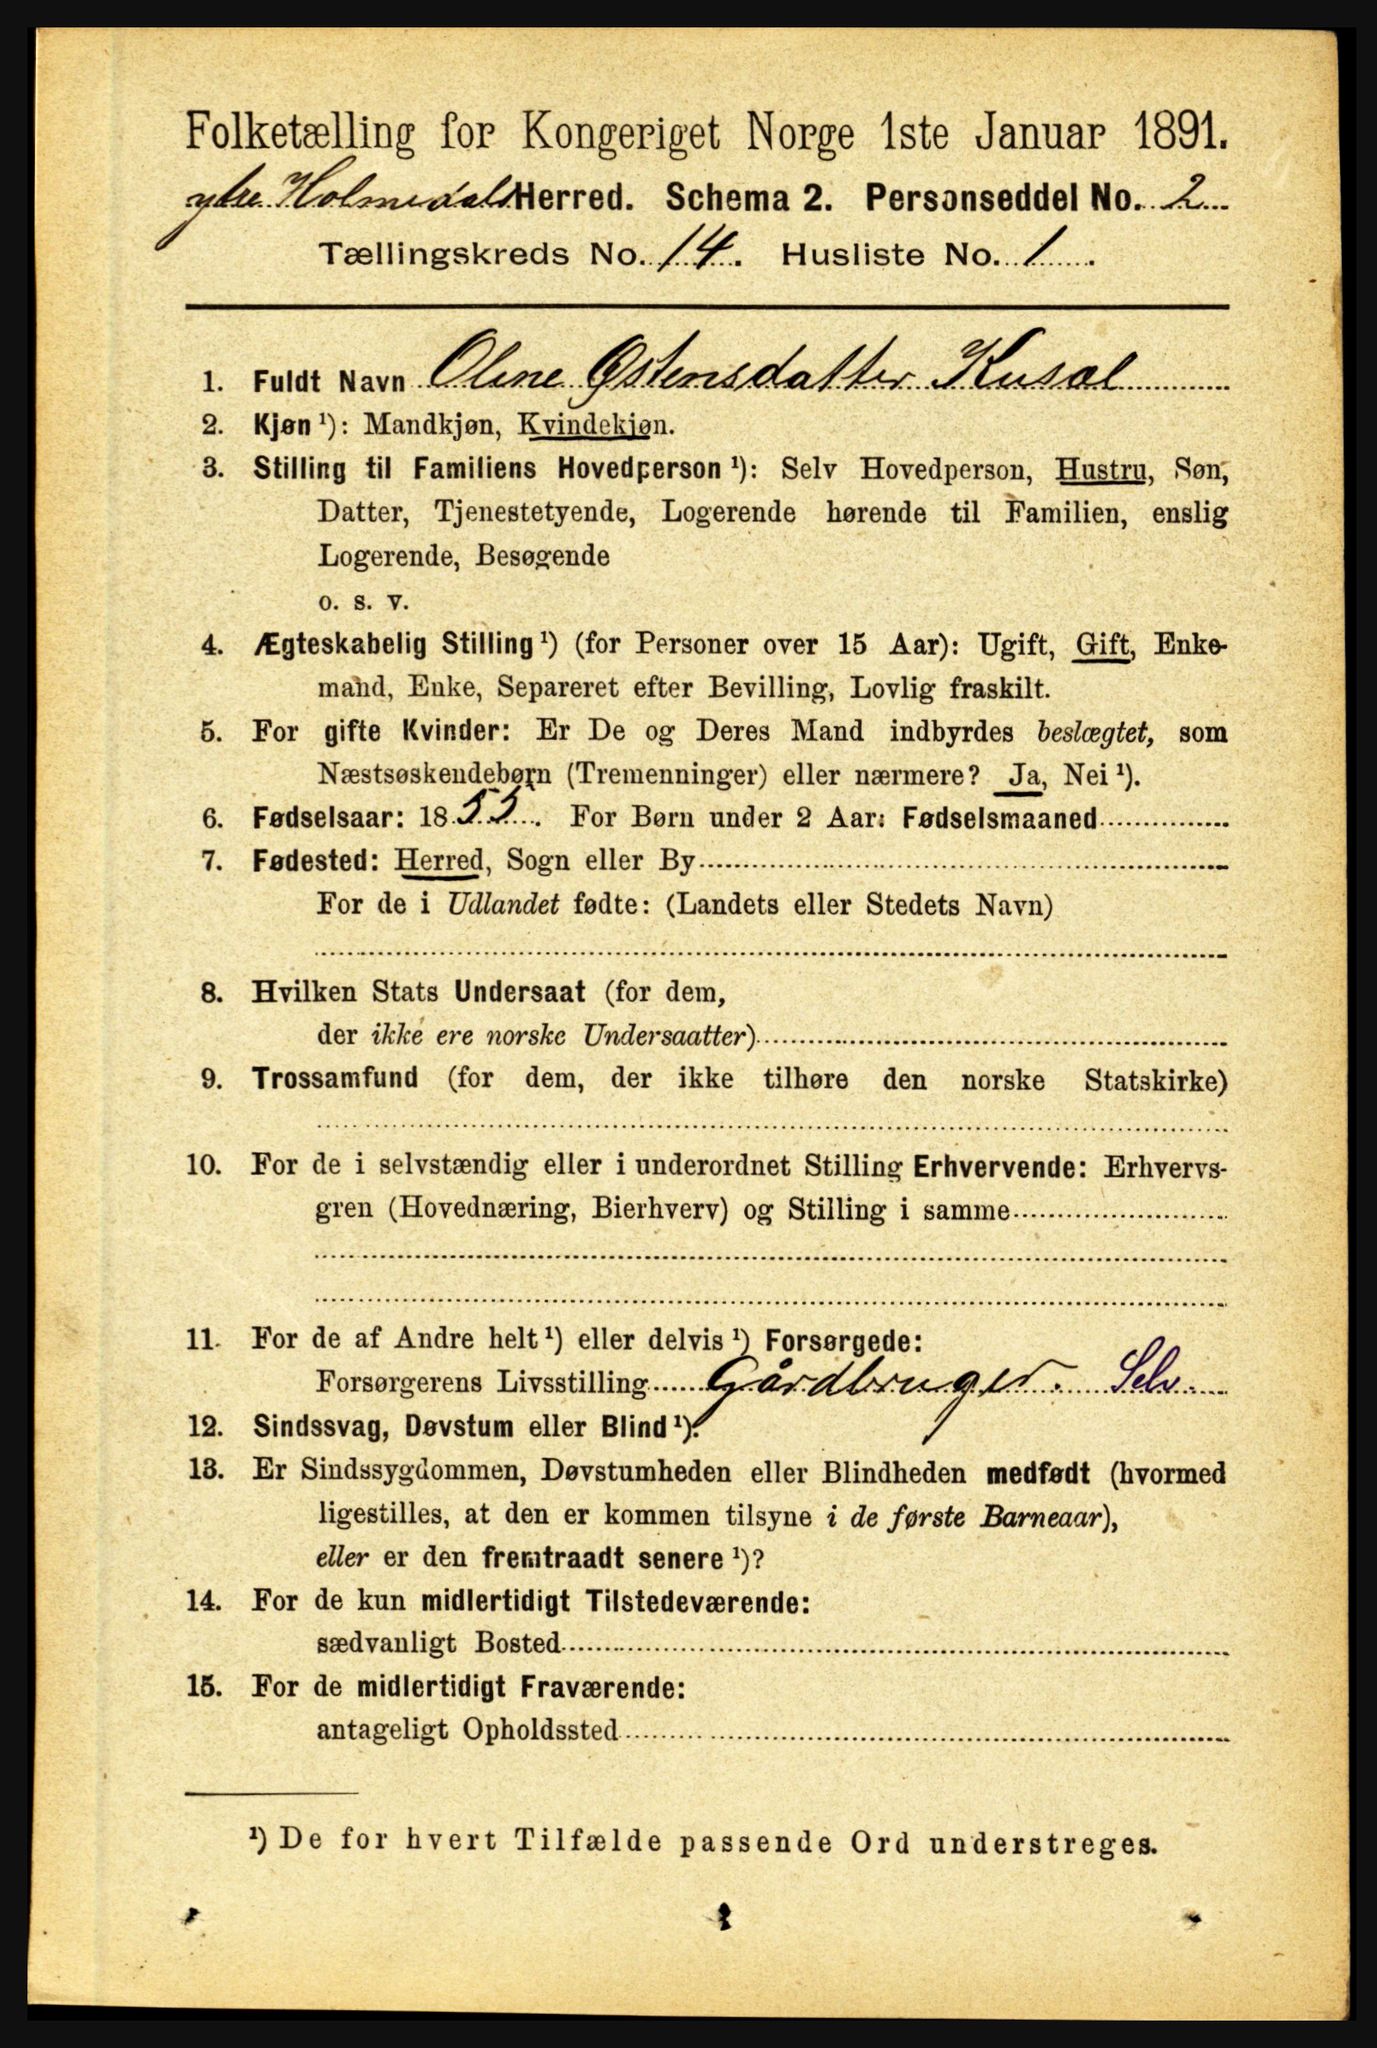 Folketælling for Kongeriget Norge 1ste Januar 1891.
ytre Holmedals Herred. Schema 2. Personseddel No. 2
Tællingskreds No. 14. Husliste No. 1.
1. Fuldt Navn Oline Østensdatter Kusæl
2. Kjøn ¹): Mandkjøn, Kvindekjøn.
3. Stilling til Familiens Hovedperson ¹): Selv Hovedperson, Hustru, Søn,
Datter, Tjenestetyende, Logerende hørende til Familien, enslig
Logerende, Besøgende
o. s. v.
4. Ægteskabelig Stilling ¹) (for Personer over 15 Aar): Ugift, Gift, Enke-
mand, Enke, Separeret efter Bevilling, Lovlig fraskilt.
5. For gifte Kvinder: Er De og Deres Mand indbyrdes beslægtet, som
Næstsøskendebørn (Tremenninger) eller nærmere? Ja, Nei ¹).
6. Fødselsaar: 1855. For Børn under 2 Aar: Fødselsmaaned
7. Fødested: Herred, Sogn eller By
For de i Udlandet fødte: (Landets eller Stedets Navn)
8. Hvilken Stats Undersaat (for dem,
der ikke ere norske Undersaatter)
9. Trossamfund (for dem, der ikke tilhøre den norske Statskirke)
10. For de i selvstændig eller i underordnet Stilling Erhvervende: Erhvervs-
gren (Hovednæring, Bierhverv) og Stilling i samme
11. For de af Andre helt ¹) eller delvis ¹) Forsørgede:
Forsørgerens Livsstilling Gårdbruger. Selv.
12. Sindssvag, Døvstum eller Blind ¹).
13. Er Sindssygdommen, Døvstumheden eller Blindheden medfødt (hvormed
ligestilles, at den er kommen tilsyne i de første Barneaar),
eller er den fremtraadt senere ¹)?
14. For de kun midlertidigt Tilstedeværende:
sædvanligt Bosted
15. For de midlertidigt Fraværende:
antageligt Opholdssted
¹) De for hvert Tilfælde passende Ord understreges.